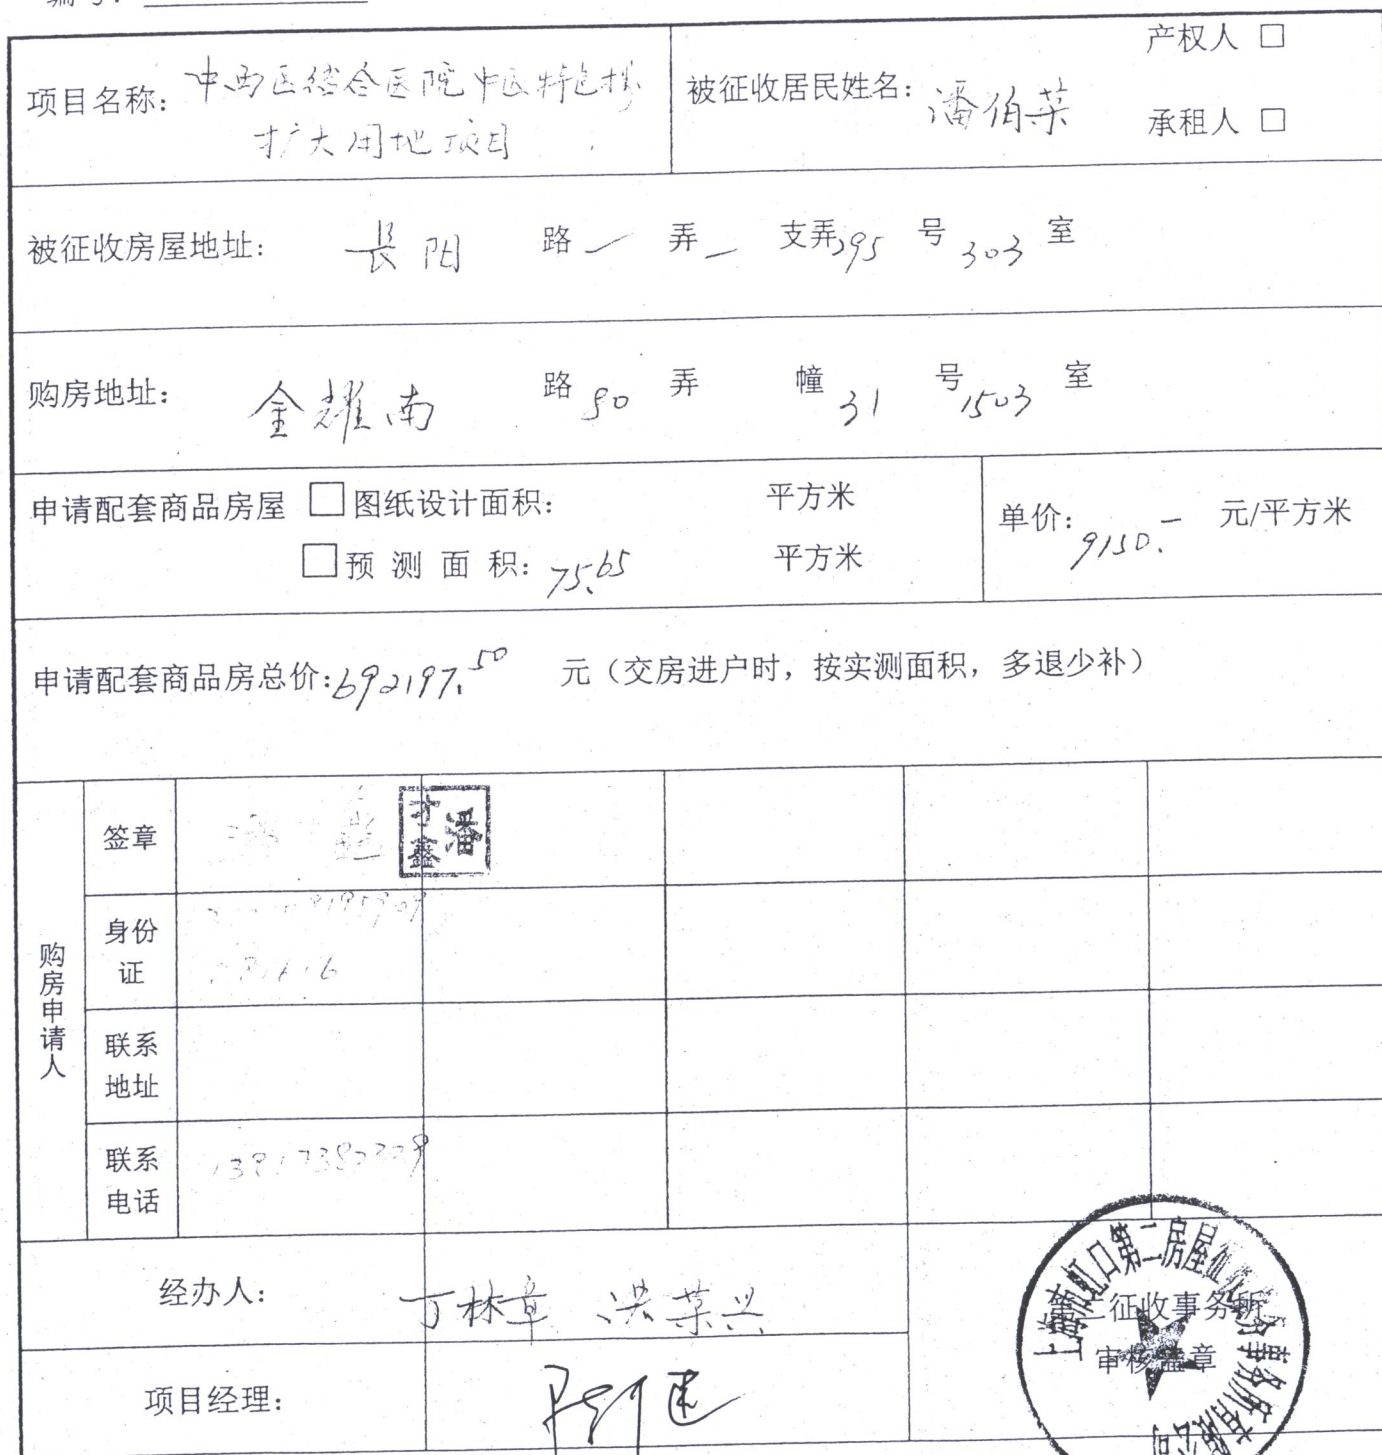 编号:
项目名称: 中西医结合医院中医特色楼
扩大用地项目
被征收居民姓名: 潘伯荣
产权人 □
承租人 □
被征收房屋地址: 长阳 路 一 弄 一 支弄 395 号 303 室
购房地址: 金耀南 路 80 弄 幢 31 号 1503 室
申请配套商品房屋 □图纸设计面积: 平方米
□预 测 面 积: 75.65 平方米
单价: 9150.- 元/平方米
申请配套商品房总价:692197.50 元（交房进户时，按实测面积，多退少补）
购房申请人
签章
潘
鑫
身份
证
联系
地址
联系
电话
经办人: 丁林章 洪荣兴
项目经理:
第二征收事务所
审核盖章
上海市虹口第二房屋征收服务事务所有限公司